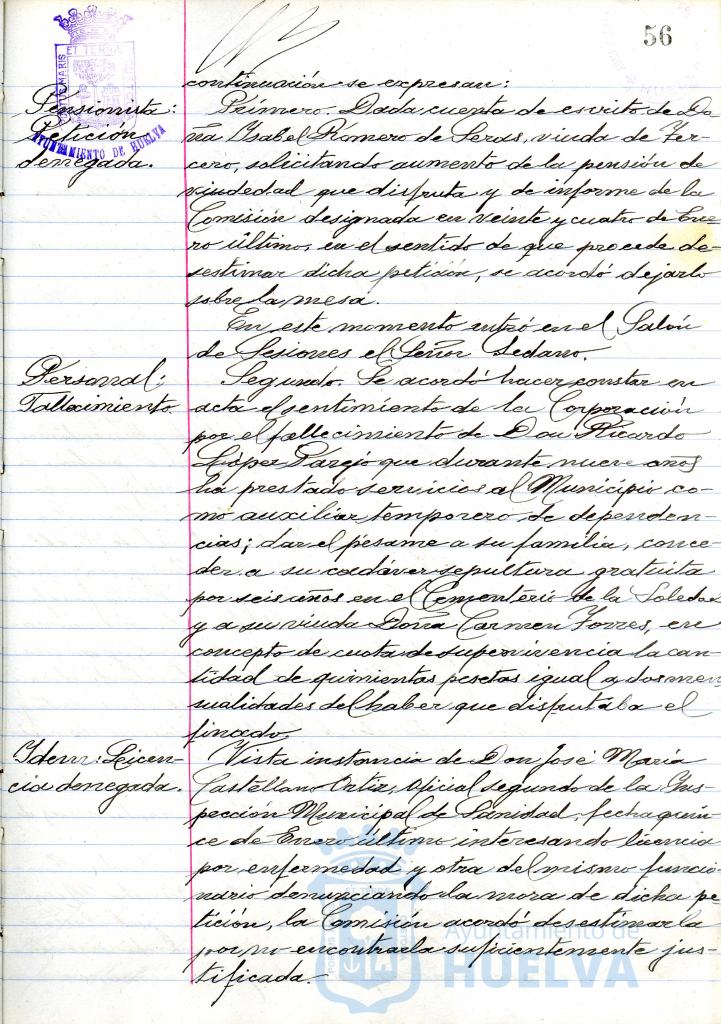 56
continuación se expresan:
Pensionista:
Petición
denegada.
Primero. Dada cuenta de escrito de Do-
ña Ysabel Romero de Seras, viuda de Ter-
cero, solicitando aumento de la pensión de
viudedad que disfruta y de informe de la
Comisión designada en veinte y cuatro de Ene-
ro último, en el sentido de que procede de-
sestimar dicha petición, se acordó dejarlo
sobre la mesa.
En este momento entró en el Salón
de Sesiones el Señor Sedano.
Personal;
Fallecimiento.
Segundo. Se acordó hacer constar en
acta el sentimiento de la Corporación
por el fallecimiento de Don Ricardo
López Parejo que durante nueve años
ha prestado servicios al Municipio co-
mo auxiliar temporero de dependen-
cias; dar el pésame a su familia, conce-
der a su cadáver sepultura gratuita
por seis años en el Cementerio de la Soledad
y a su viuda Doña Carmen Torres, en
concepto de cuota de supervivencia la can-
tidad de quinientas pesetas igual a dos men
sualidades del haber que disfrutaba el
finado.
Idem: Licen-
cia denegada.
Vista instancia de Don José María
Castellano Ortiz, Oficial segundo de la Yns-
pección Municipal de Sanidad, fecha quin-
ce de Enero último interesando licencia
por enfermedad y otra del mismo funcio-
nario denunciando la mora de dicha pe-
tición, la Comisión acordó desestimarla
por no encontrarla suficientemente jus-
tificada.
AYUNTAMIENTO DE HUELVA
Ayuntamiento de
HUELVA